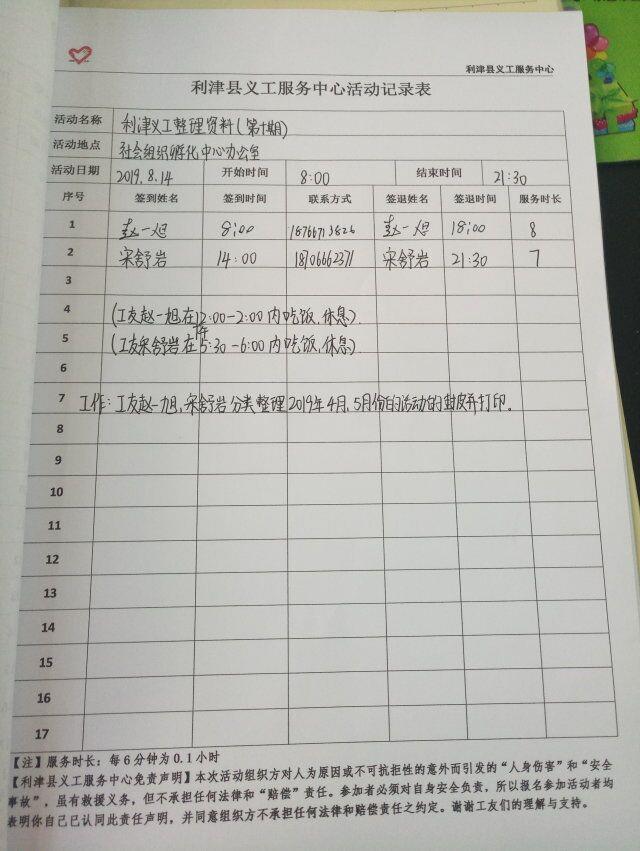 利津县义工服务中心
利津县义工服务中心活动记录表
活动名称 利津义工整理资料(第十期)
活动地点 社会组织孵化中心办公室
活动日期 2019.8.14 开始时间 8:00 结束时间 21:30
序号 签到姓名 签到时间 联系方式 签退姓名 签退时间 服务时长
1 赵一旭 8:00 18766713826 赵一旭 18:00 8
2 宋舒岩 14:00 18106662371 宋舒岩 21:30 7
3
4 (工友赵一旭在12:00-2:00内吃饭,休息).
下午
5 (工友宋舒岩在5:30-6:00内吃饭,休息).
6
7 工作:工友赵一旭,宋舒岩分类整理2019年4月,5月份的活动的封皮并打印。
8
9
10
11
12
13
14
15
16
17
【注】服务时长:每6分钟为0.1小时
【利津县义工服务中心免责声明】本次活动组织方对人为原因或不可抗拒性的意外而引发的“人身伤害”和“安全
事故”,虽有救援义务,但不承担任何法律和“赔偿”责任。参加者必须对自身安全负责,所以报名参加活动者均
表明你自己已认同此责任声明,并同意组织方不承担任何法律和赔偿责任之约定。谢谢工友们的理解与支持。